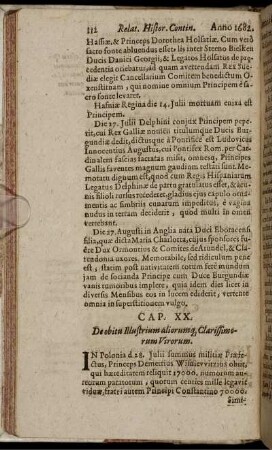 112 Relat. Histor. Contin. Anno 1682.
Hassiæ, & Princeps Dorothea Holsatiæ. Cum verò
sacro fonte abluendus esset lis inter Stenno Bielken
Ducis Danici Georgii, & Legatos Holsatos de præ-
cedentia oriebatur, ad quam avertendam Rex Sue-
diæ elegit Cancellarium Comitem benedictum O-
xenstirnam, qui nomine omnium Principem è sa-
cro fonte levaret.
Hafniæ Regina die 14. Julii mortuum enixa est
Principem.
Die 27. Julii Delphini conjux Principem pepe-
rit, cui Rex Galliæ nomen titulumque Ducis Bur-
gundiæ dedit, dictusque à Pontifice est Ludovicus
Innocentius Augustus, cui Pontifex Rom. per Car-
dinalem fascias lactatas misit, omnesq; Principes
Galliæ farentes magnum gaudium testati sunt. Me-
moratu dignum est, quod cum Regis Hispaniarum
Legatus Delphinæ de partu gratulatus esset, & ian-
nis filioli rursus recederet, gladius ejus capulo orna-
mentis ac fimbriis cunarum impeditus, è vagina
nudus in terram deciderit, quod multi in omen
verrebant.
Die 27. Augusti in Anglia nata Duci Eboracensi
filia, quæ dicta Maria Charlotta, cujus sponsores fue-
re Dux Ormontius & Comites de Arundel, & Cla-
rendonia uxores. Memorabile, sed ridiculum pene
est, statim post nativitatem totum ferè mundum
jam de socianda Principe cum Duce Burgundiæ
vanis rumoribus impleri, quia idem dies licet in
diversis Mensibus eos in lucem ediderit, vertente
omnia in superstitionem vulgo.
CAP. XX.
De obitu Illustrium aliorumq; Clarissimo-
rum Virorum.
IN Polonia d. 28. Julii summus militiæ Præfe-
ctus, Princeps Demetrius Wisnievvitzius obiit,
qui hæreditatem reliquit 17000. numorum au-
reorum paratorum, quorum centies mille legavit
viduæ, fratri autem Principi Constantino 70000.
simi-